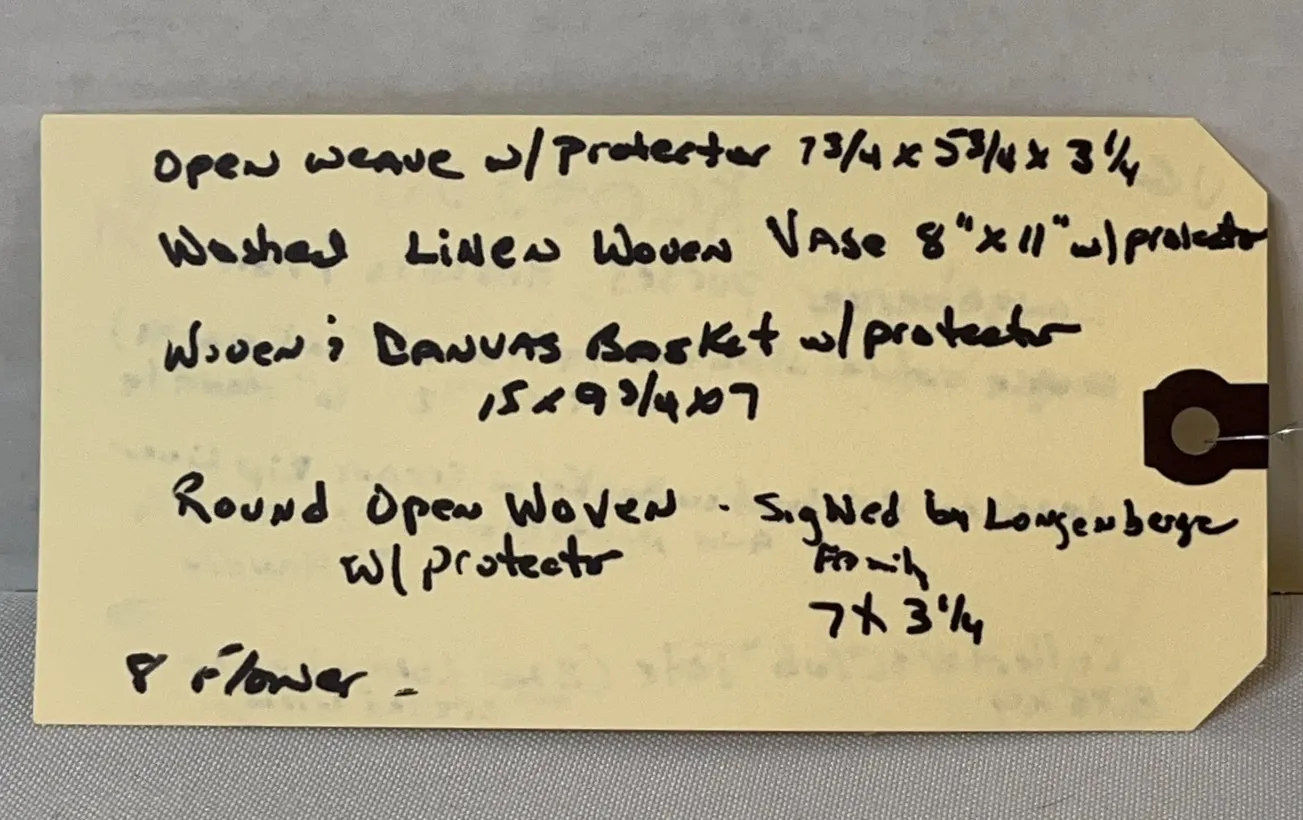 Open weave w/ protector 7 3/4 x 5 3/4 x 3 1/4
Washed Linen Woven Vase 8" x 11" w/ protector
Woven & Canvas Basket w/ protector
15 x 9 3/4 x 7
Round Open Woven - Signed by Longenberge
w/ protector Family
7 x 3 1/4
8 Flower -